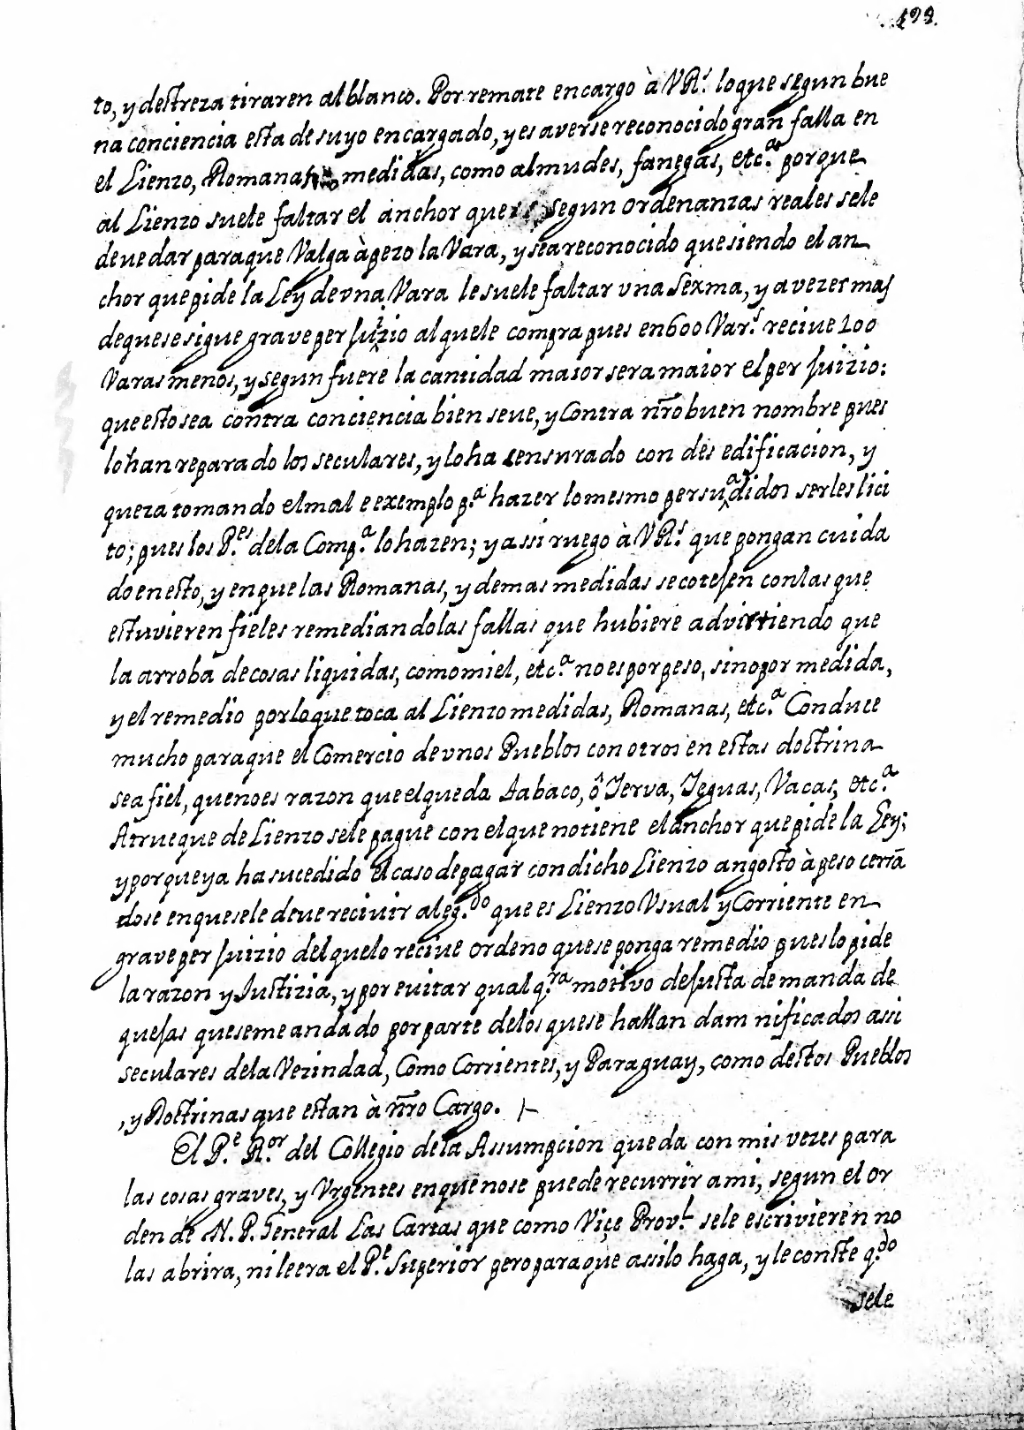 to, y destreza tiraren al blanco. Por remate encargo à VRs. lo que segun bue
na conciencia esta de suyo encargado, y es averse reconocido gran falla en
el Lienzo, Romanas medidas, como almudes, fanegas, etc.as porque
al Lienzo suele faltar el anchor que segun ordenanzas reales sele
deue dar paraque Valga à pezo la Vara, y sea reconocido que siendo el an
chor que pide la Ley de vna Vara le suele faltar vna Sexma, y a vezes mas
de que se sigue grave perjuizio al que le compra pues en 600 Var.s reciue 100
Varas menos, y segun fuere la cantidad maior sera maior el perjuizio:
que esto sea contra conciencia bien se ve, y Contra nr̃o buen nombre pues
lo han reparado los seculares, y lo ha censurado con des edificacion, y
queza tomando el mal e exemplo p.a hazer lo mesmo persuadidos serles lici
to; pues los P.es de la Comp.a lo hazen; y assi ruego à VRs. que pongan cuida
do en esto, y en que las Romanas, y demas medidas se cotejen con las que
estuvieren fieles remediando las fallas que hubiere advirtiendo que
la arroba de cosas liquidas, como miel, etc.a no es por peso, sino por medida,
y el remedio por lo que toca al Lienzo medidas, Romanas, etc.a Conduce
mucho para que el Comercio de vnos Pueblos con otros en estas doctrina
sea fiel, que no es razon que el que da Tabaco, ô Yerva, Yeguas, Vacas, etc.a
A trueque de Lienzo sele pague con el que no tiene el anchor que pide la Ley;
y porque ya ha sucedido el caso de pagar con dicho Lienzo angosto à peso cerrã
dose en que sele deve recivir aleg.do que es Lienzo Vsual y Corriente en
grave perjuizio del que lo reciue ordeno que se ponga remedio pues lo pide
la razon y Justizia, y por evitar qualq.ra motivo de justa demanda de
quejas que se me an dado por parte de los que se hallan damnificados assi
seculares de la Vezindad, Como Corrientes, y Paraguay, como destos Pueblos
, y Doctrinas que estan à nr̃o Cargo.
El P.e R.or del Collegio de la Assumpcion queda con mis vezes para
las cosas graves, y Vrgentes en que no se puede recurrir a mi, segun el or
den de N. P. General Las Cartas que como Viçe Prov.l sele escrivieren no
las abrira, ni leera el P.e Superior pero para que assi lo haga, y le conste q.do
sele